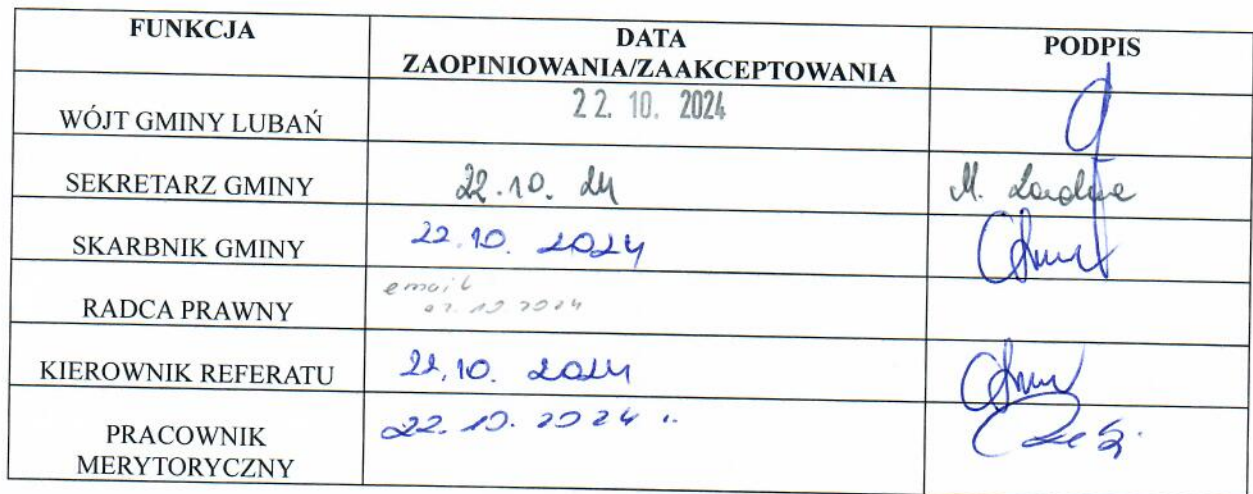 FUNKCJA
DATA
ZAOPINIOWANIA/ZAAKCEPTOWANIA
PODPIS
WÓJT GMINY LUBAŃ
22. 10. 2024
SEKRETARZ GMINY
22.10. 24
M.
SKARBNIK GMINY
22.10. 2024
RADCA PRAWNY
email
KIEROWNIK REFERATU
22.10. 2024
PRACOWNIK
MERYTORYCZNY
22.10.2024 r.